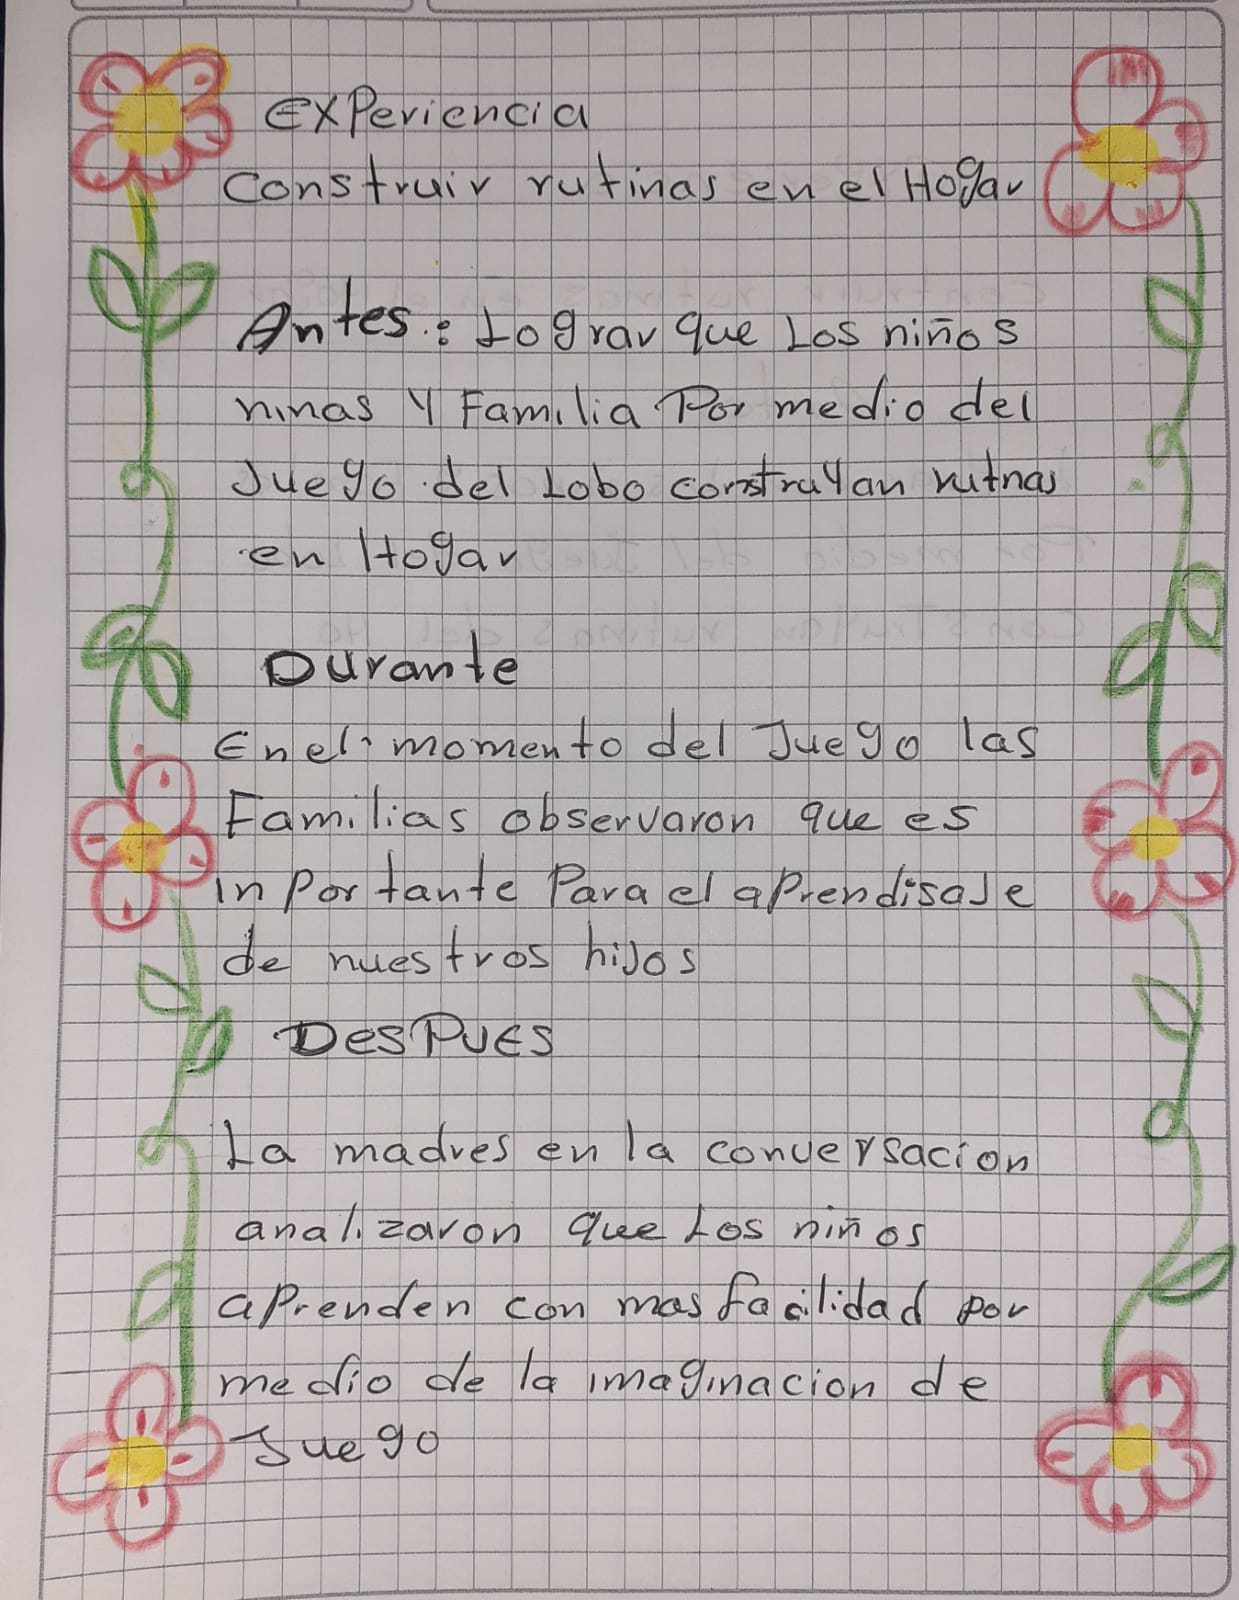 Experiencia
Construir rutinas en el Hogar
Antes: Lograr que Los niños
ninas Y Familia Por medio del
Juego del Lobo construYan rutnas
en Hogar
Durante
En el momento del Juego las
Familias observaron que es
inportante Para el aprendisaJe
de nuestros hiJos
DesPues
La madres en la conversacion
analizaron que Los niños
aprenden con mas facilidad por
medio de la imaginacion de
Juego